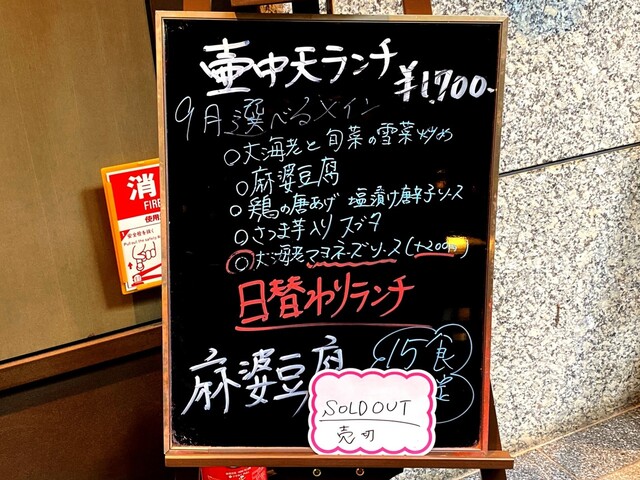 壷中天ランチ
¥1,700-
9月選べるメイン
○大海老と旬菜の雪菜炒め
○麻婆豆腐
○鶏の唐あげ 塩漬け唐辛子ソース
○さつま芋入り スブタ
○大海老マヨネーズソース(+200円)
日替わりランチ
麻婆豆腐
15食
定
SOLD OUT
売切
消
FIRE
使用